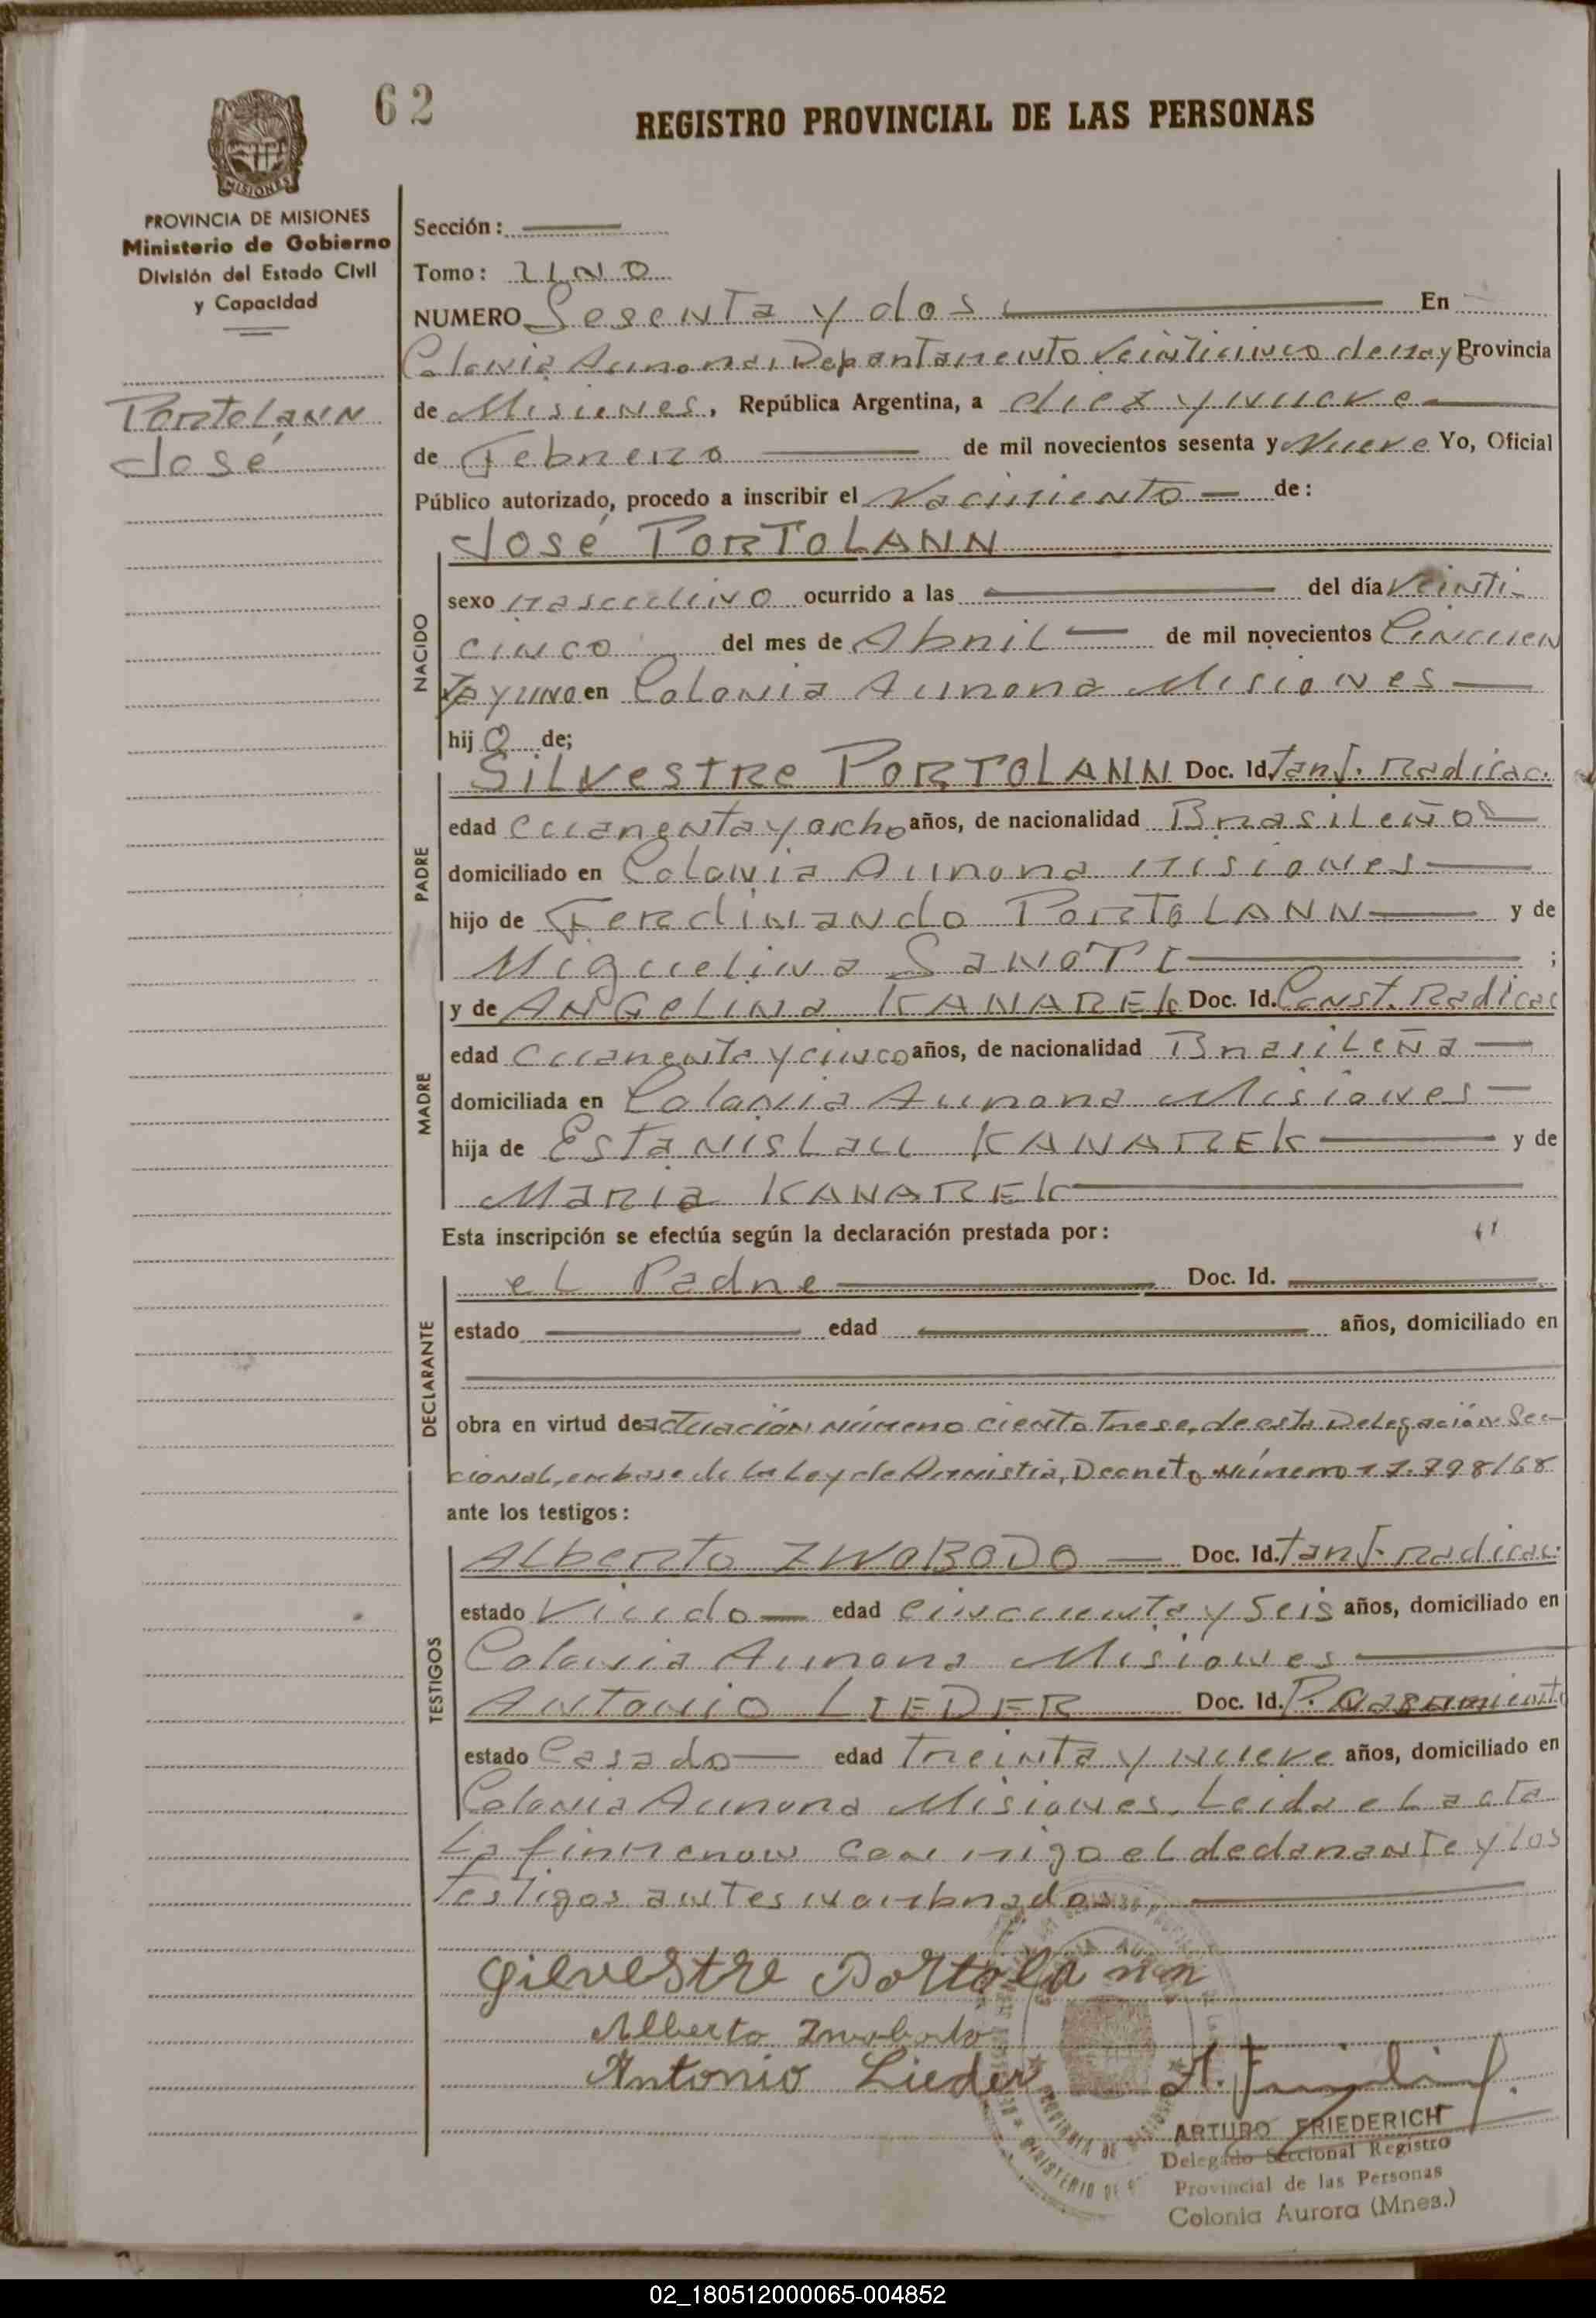 62
REGISTRO PROVINCIAL DE LAS PERSONAS
MISIONES
PROVINCIA DE MISIONES
Ministerio de Gobierno
División del Estado Civil
y Capacidad
Portolann
José
Sección:
Tomo: UNO
NUMERO Sesenta y dos En
Colonia Aurora, Departamento Veinticinco de May Provincia
de Misiones, República Argentina, a diez y nueve
de Febrero de mil novecientos sesenta y Nueve Yo, Oficial
Público autorizado, procedo a inscribir el Nacimiento de:
José PORTOLANN
NACIDO
sexo masculino ocurrido a las del día Veinti-
cinco del mes de Abril de mil novecientos Cincuen
ta y uno en Colonia Aurora Misiones
hijo de;
PADRE
Silvestre PORTOLANN Doc. Id. Tarj. Radicac.
edad cuarenta y ocho años, de nacionalidad Brasileño
domiciliado en Colonia Aurora Misiones
hijo de Ferdinando PortoLANN y de
Miguelina Sanoti ;
MADRE
y de ANGELINA KANAREK Doc. Id. Const. Radicac
edad cuarenta y cinco años, de nacionalidad Brasileña
domiciliada en Colonia Aurora Misiones
hija de Estanislau KANAREK y de
Maria KANAREK
Esta inscripción se efectúa según la declaración prestada por:
DECLARANTE
el Padre Doc. Id.
estado edad años, domiciliado en
obra en virtud de actuación número ciento trese, de esta Delegación Sec-
cional, en base de la Ley de Amnistia, Decreto Número 17.798/68
ante los testigos:
TESTIGOS
Alberto ZWOBODO Doc. Id. Tarj. radicac.
estado Viudo edad cincuenta y seis años, domiciliado en
Colonia Aurora Misiones
Antonio LIEDER Doc. Id.
estado Casado edad treinta y nueve años, domiciliado en
Colonia Aurora Misiones. Leida el acta
la firmaron con migo el declarante y los
testigos antes nombrados.
Silvestre Portolann
Alberto Zwobodo
Antonio Lieder
ARTURO FRIEDERICH
Delegado Seccional Registro
Provincial de las Personas
Colonia Aurora (Mnes.)
02_180512000065-004852